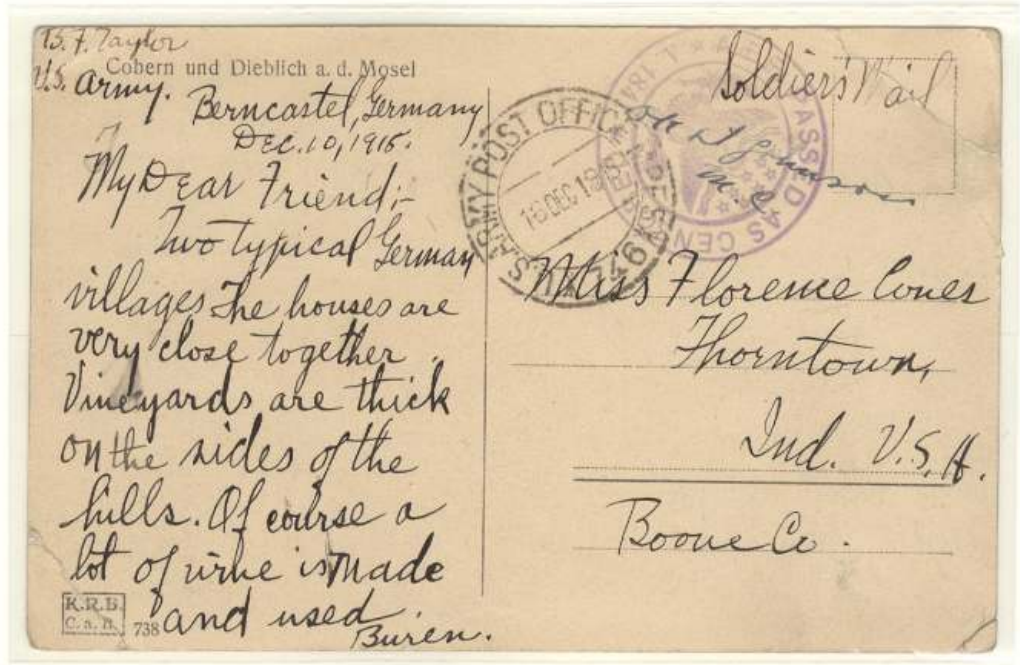 B. F. Taylor
Cobern und Dieblich a. d. Mosel
U.S. Army.
Berncastel, Germany
Dec. 10, 1918.
My Dear Friend;-
Two typical German
villages The houses are
very close together.
Vineyards are thick
on the sides of the
hills. Of course a
lot of wine is made
and used
Buren.
K.R.B.
C. a. R.
738
U.S. ARMY POST OFFICE
18 DEC 18
746
PASSED AS CENSORED
Soldier's Mail
OK
M.C.
Miss Florence Coues
Thorntown,
Ind. U.S.A.
Boone Co.